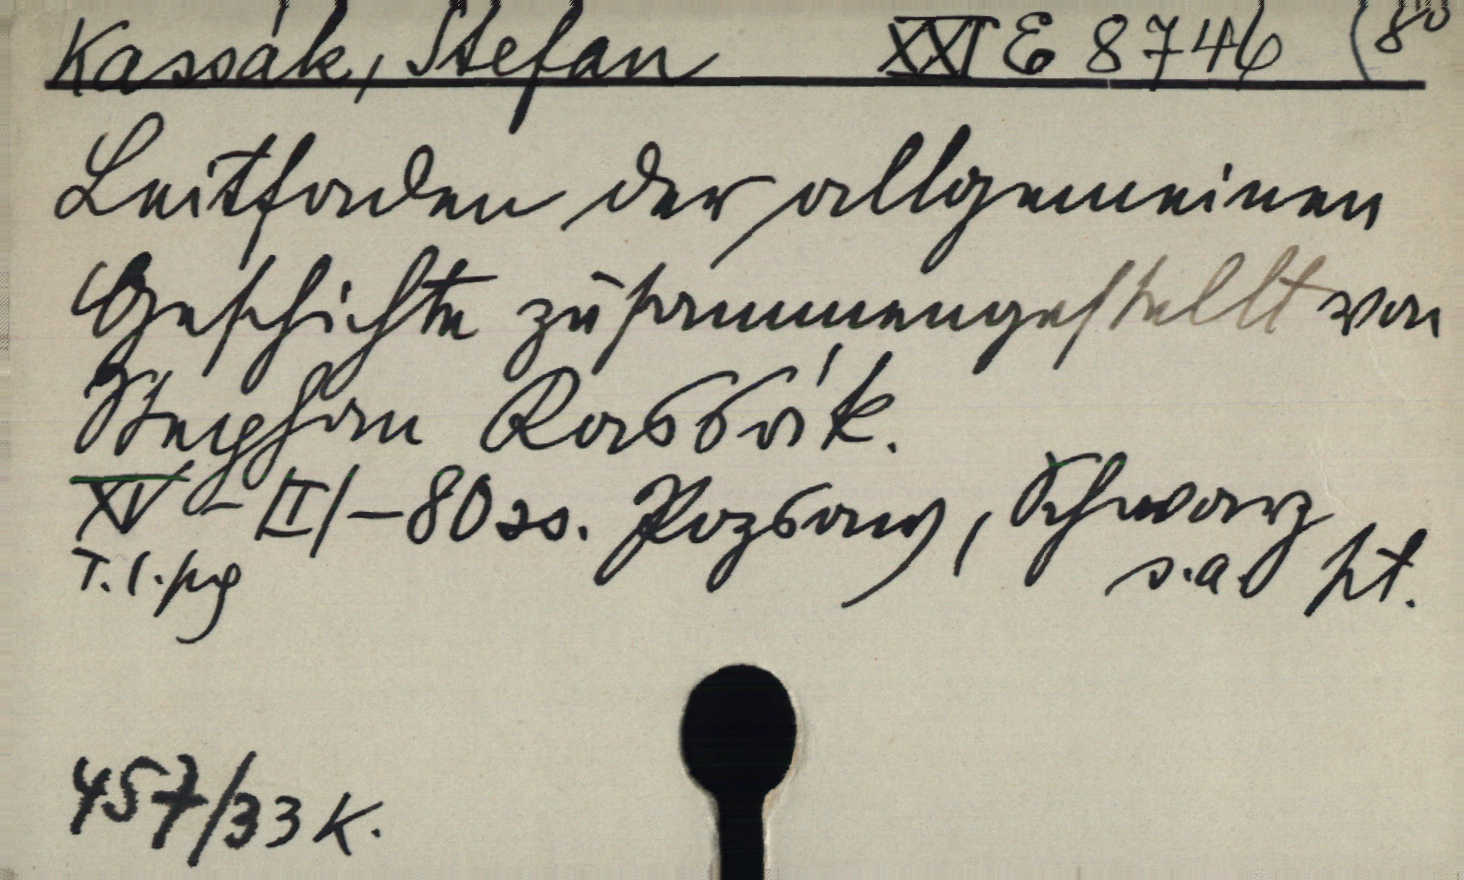 Kassák, Stefan XXI E 8746 (8°
Leitfaden der allgemeinen
Geschichte zusammengestellt von
Stephan Kassák.
XV - II/-80 ss. Pozsony, Schwarz
T. l. pg s.a. pt.
457/33 K.